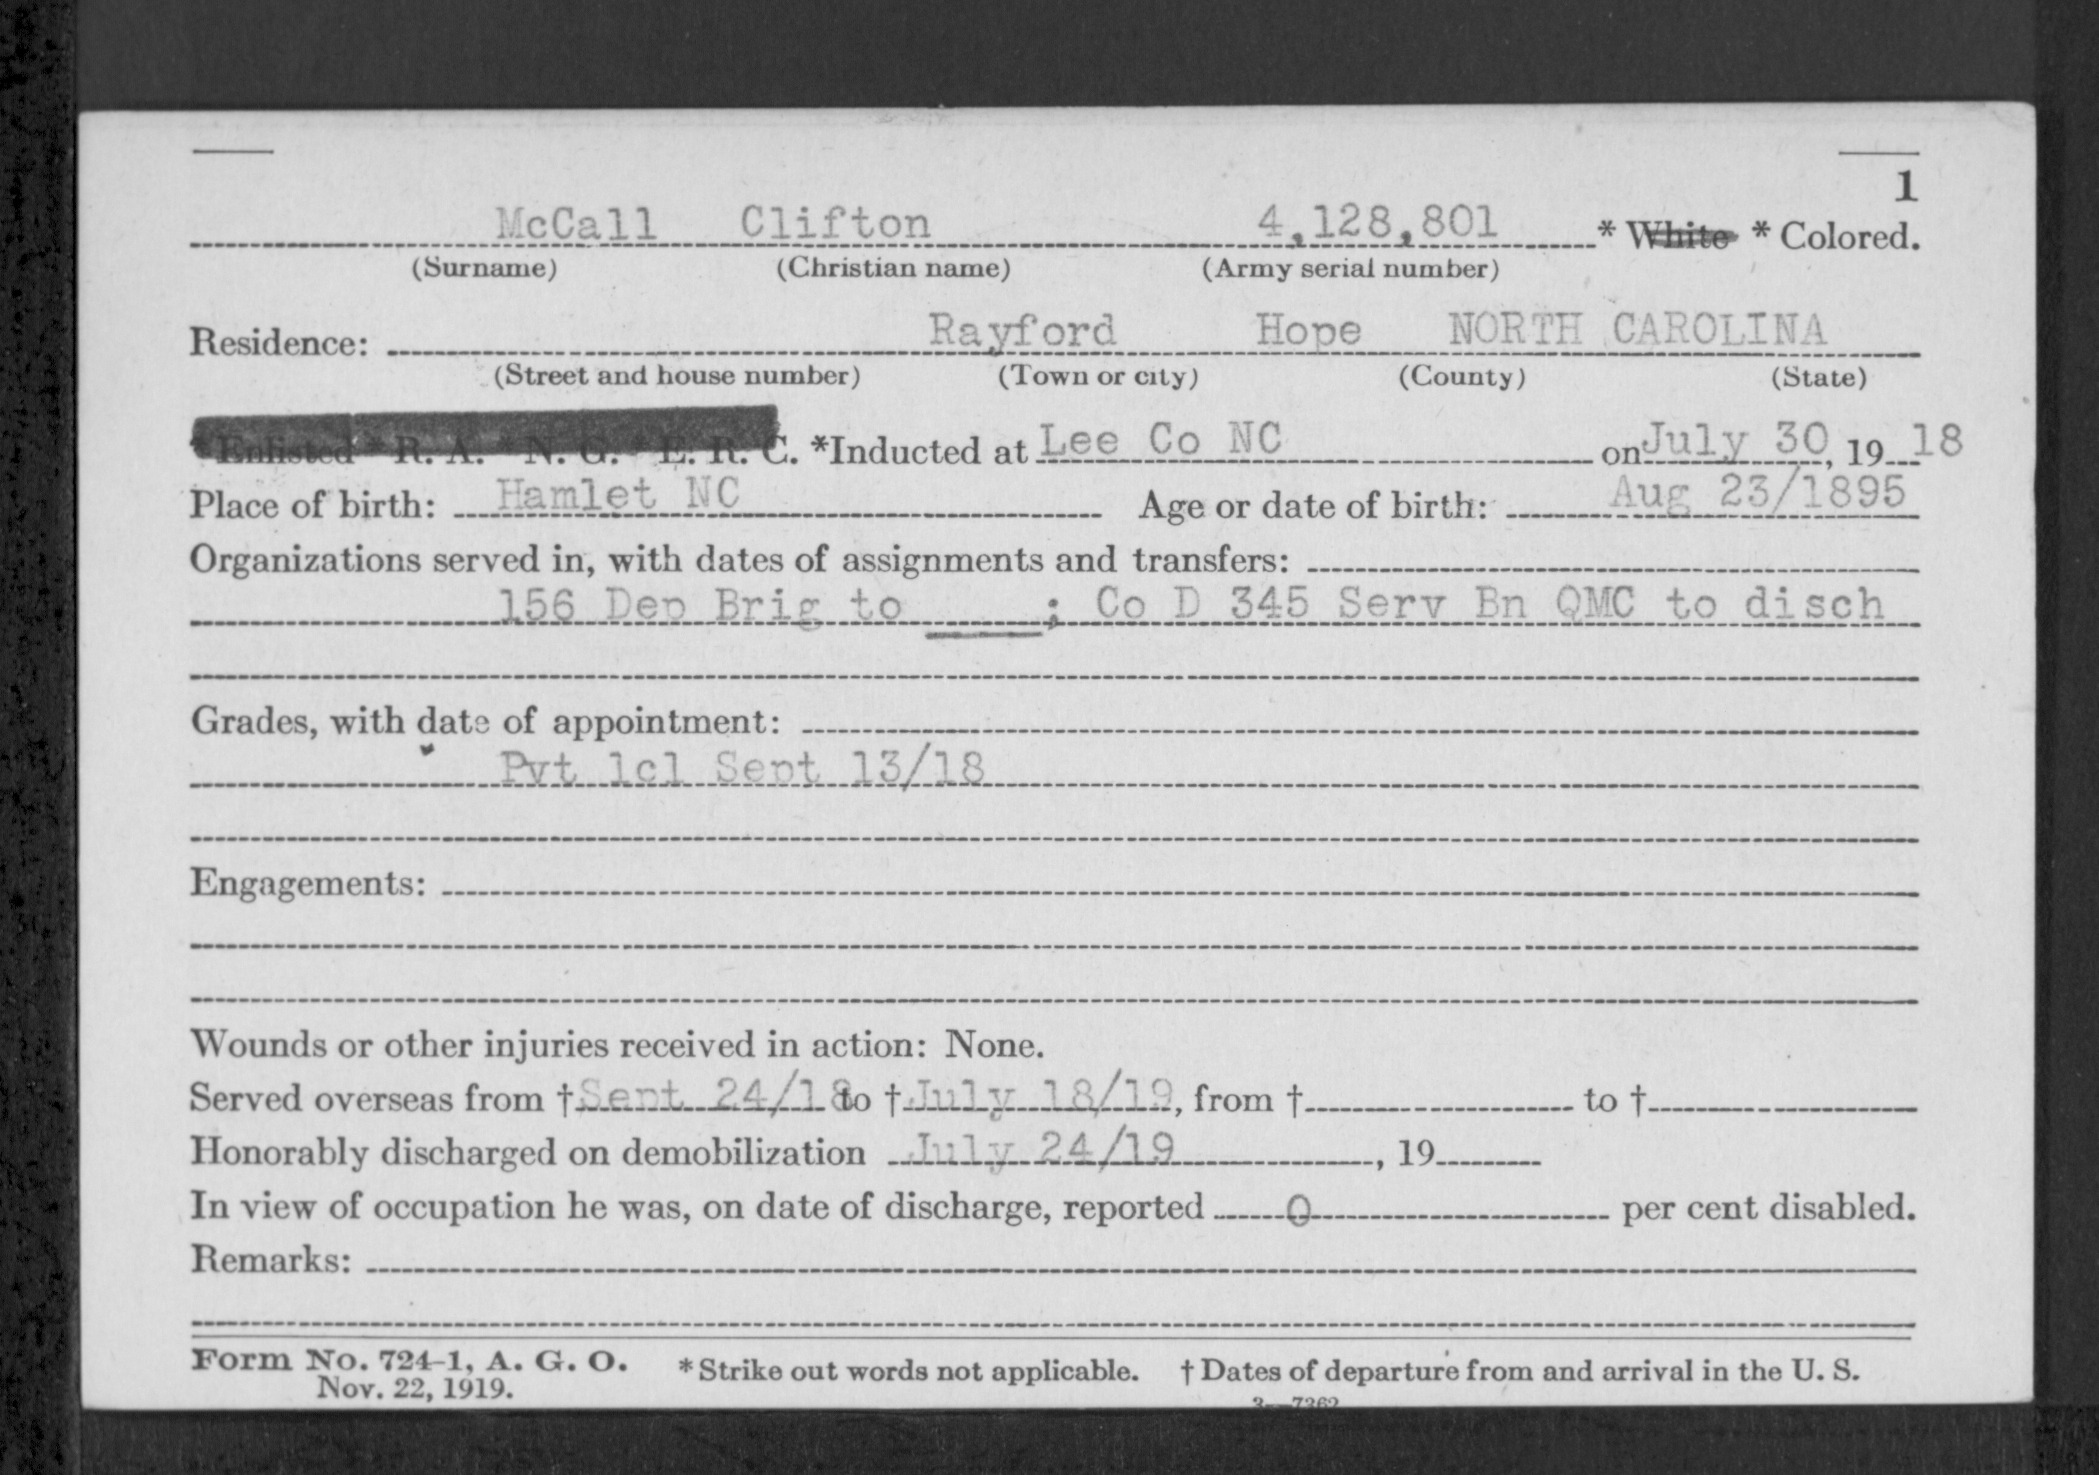 1
McCall Clifton 4,128,801 * White * Colored.
(Surname) (Christian name) (Army serial number)
Residence: Rayford Hope NORTH CAROLINA
(Street and house number) (Town or city) (County) (State)
* Enlisted * R. A. * N. G. * E. R. C. *Inducted at Lee Co NC on July 30, 19 18
Place of birth: Hamlet NC Age or date of birth: Aug 23/1895
Organizations served in, with dates of assignments and transfers:
156 Dep Brig to ; Co D 345 Serv Bn QMC to disch
Grades, with date of appointment:
Pvt 1cl Sept 13/18
Engagements:
Wounds or other injuries received in action: None.
Served overseas from † Sept 24/18 to † July 18/19, from † to †
Honorably discharged on demobilization July 24/19, 19
In view of occupation he was, on date of discharge, reported 0 per cent disabled.
Remarks:
Form No. 724-1, A. G. O. * Strike out words not applicable. † Dates of departure from and arrival in the U. S.
Nov. 22, 1919.
3—7362